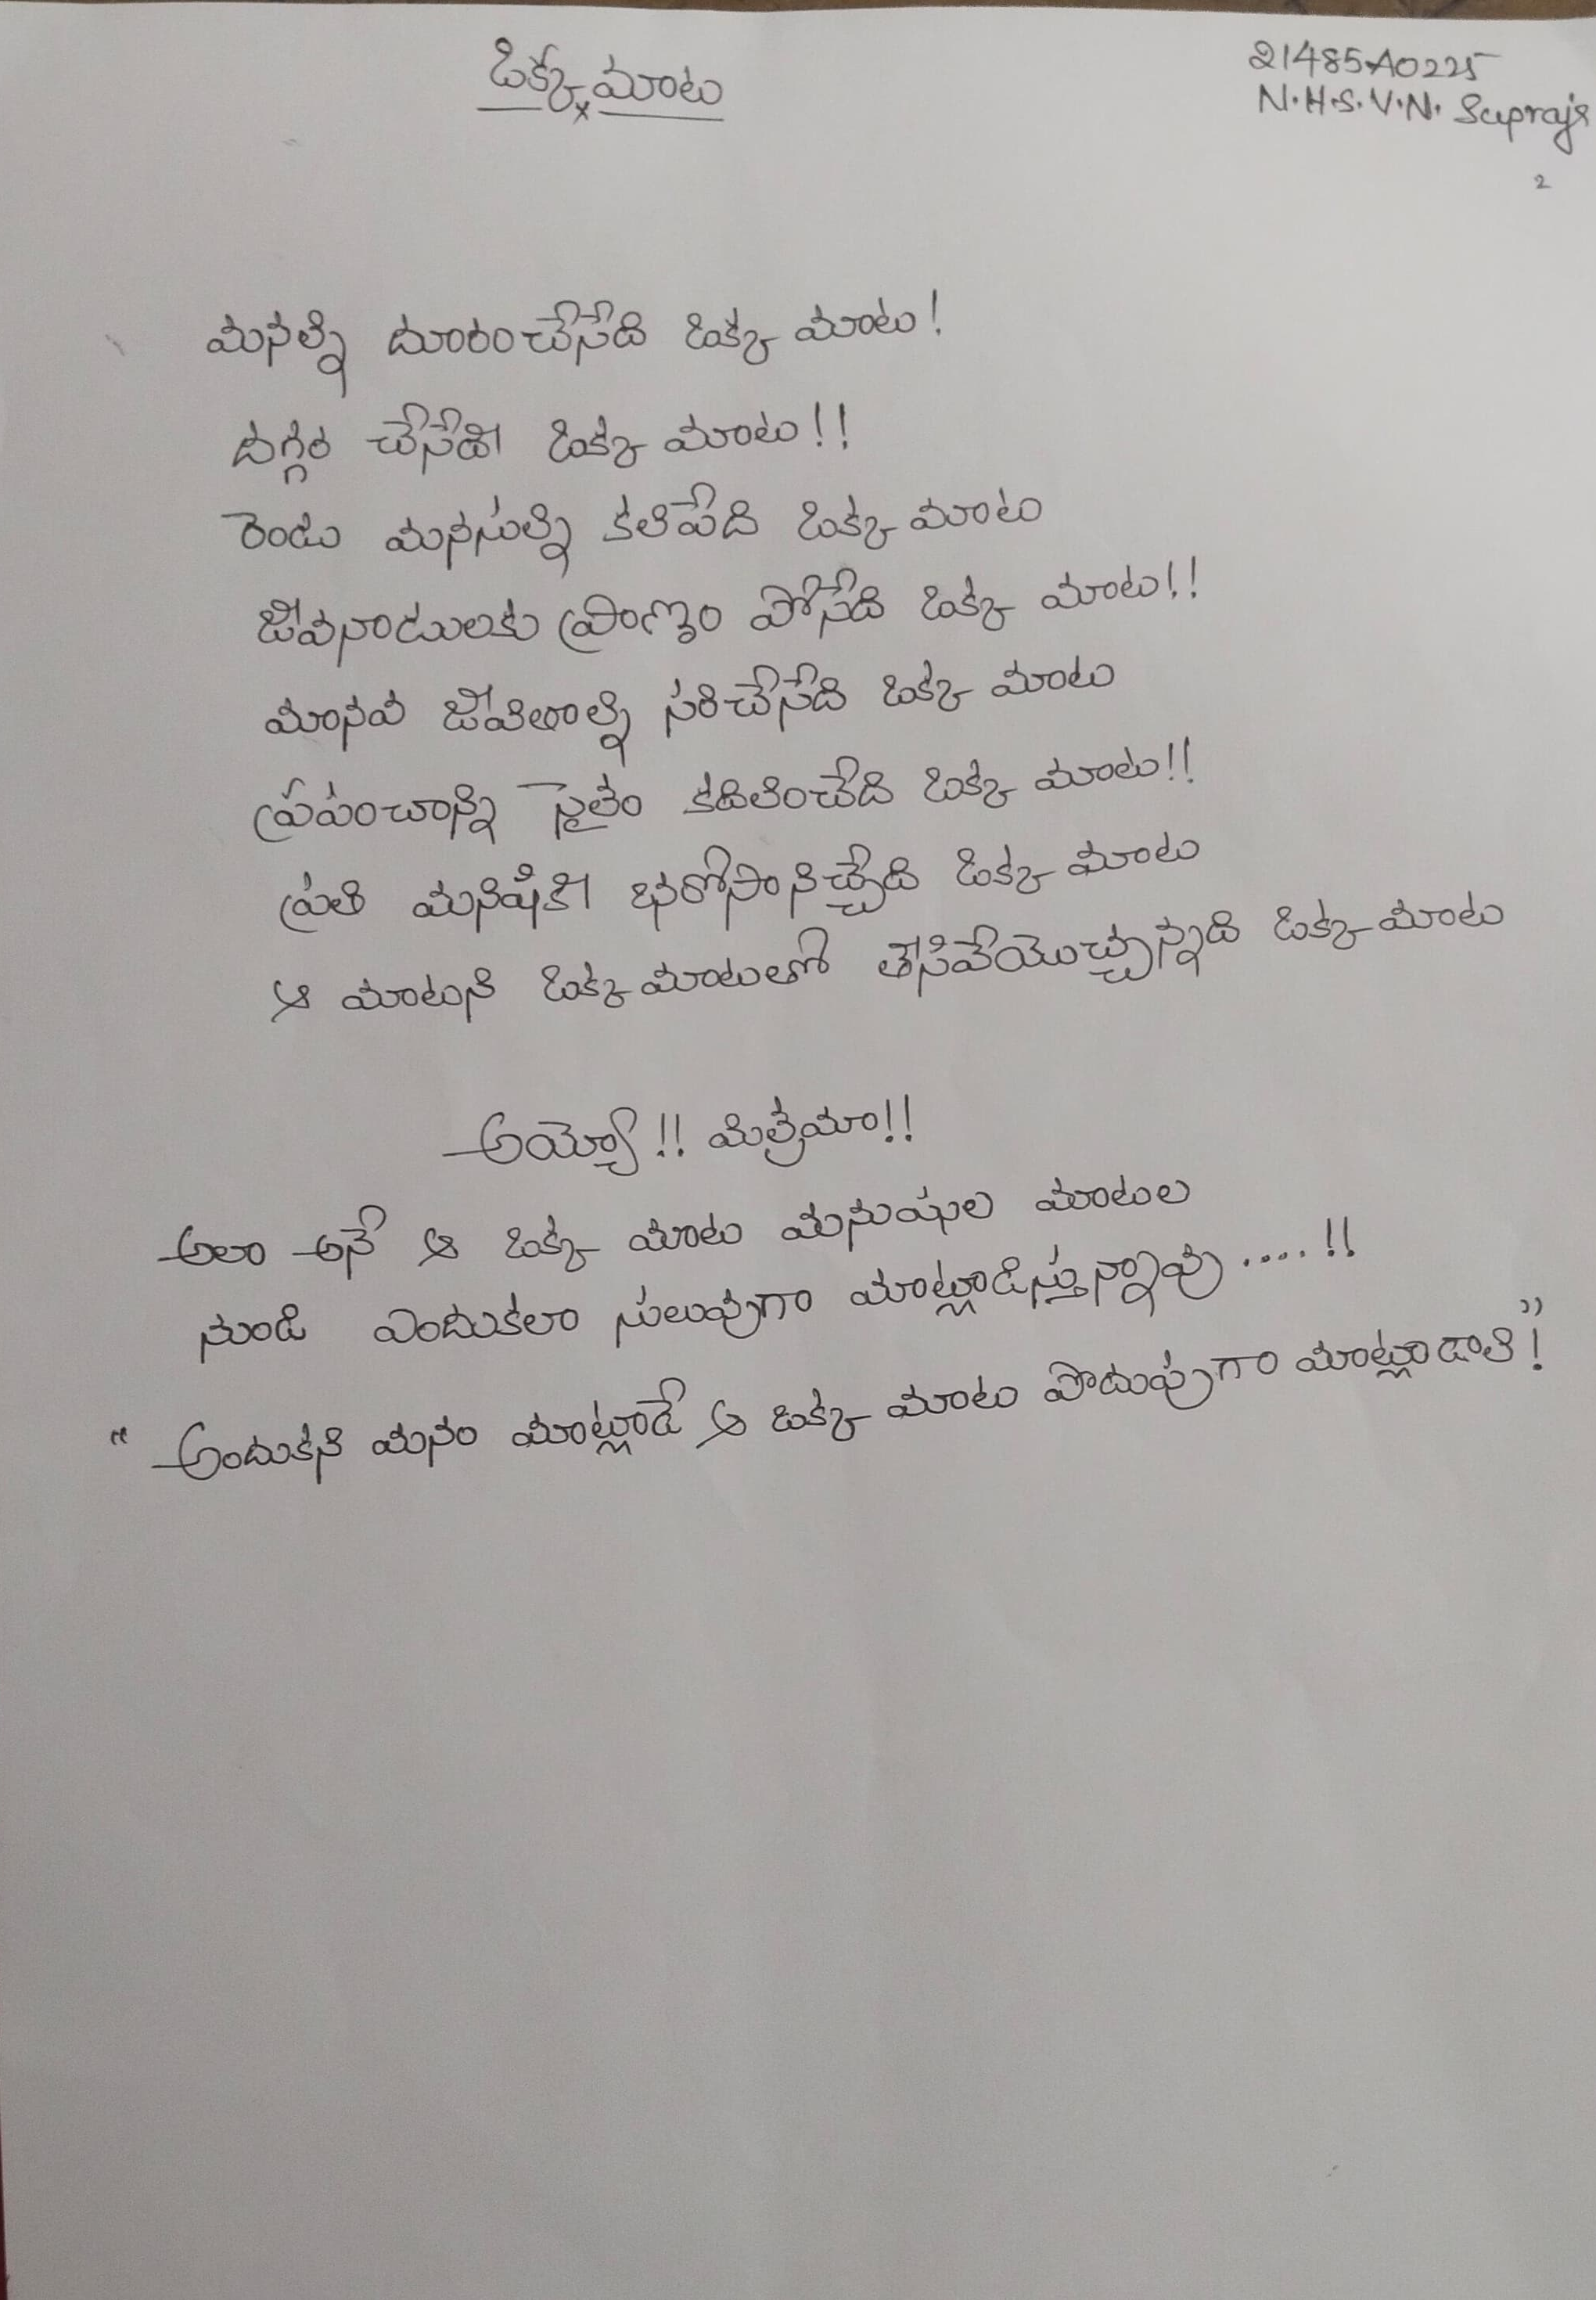 ఒక్క మాట
21485A0225
N.H.S.V.N. Supraja
2
మనల్ని దూరంచేసేది ఒక్క మాట!
దగ్గర చేసేది ఒక్క మాట!!
రెండు మనసుల్ని కలిపేది ఒక్క మాట
జీవనాడులకు ప్రాణం పోసేది ఒక్క మాట!!
మానవ జీవితాల్ని సరిచేసేది ఒక్క మాట
ప్రపంచాన్ని సైతం కదిలించేది ఒక్క మాట!!
ప్రతి మనిషికి భరోసానిచ్చేది ఒక్క మాట
ఆ మాటని ఒక్క మాటతో తీసివేయొచ్చున్నది ఒక్క మాట
అయ్యో!! మిత్రమా!!
అలా అనే ఆ ఒక్క మాట మనుషుల మాటల
నుండి ఎందుకలా సులువుగా మాట్లాడిస్తున్నావు....!!
" అందుకని మనం మాట్లాడే ఆ ఒక్క మాట పొదుపుగా మాట్లాడాలి!"